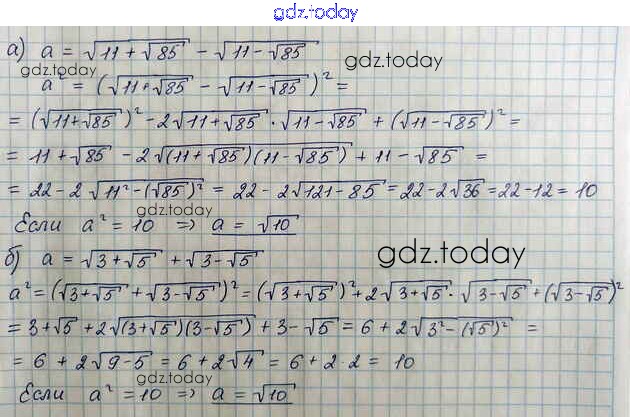 gdz.today
а) a = √(11 + √85) − √(11 − √85)
gdz.today gdz.today
a² = (√(11 + √85) − √(11 − √85))² =
= (√(11 + √85))² − 2√(11 + √85) · √(11 − √85) + (√(11 − √85))² =
= 11 + √85 − 2√((11 + √85)(11 − √85)) + 11 − √85 =
= 22 − 2√(11² − (√85)²) = 22 − 2√(121 − 85) = 22 − 2√36 = 22 − 12 = 10
gdz.today
Если a² = 10 ⇒ a = √10
б) a = √(3 + √5) + √(3 − √5)
gdz.today
a² = (√(3 + √5) + √(3 − √5))² = (√(3 + √5))² + 2√(3 + √5) · √(3 − √5) + (√(3 − √5))²
= 3 + √5 + 2√((3 + √5)(3 − √5)) + 3 − √5 = 6 + 2√(3² − (√5)²) =
= 6 + 2√(9 − 5) = 6 + 2√4 = 6 + 2 · 2 = 10
gdz.today
Если a² = 10 ⇒ a = √10